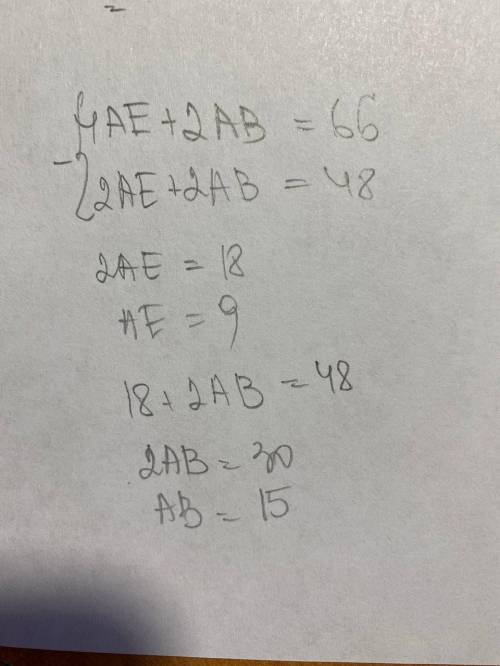 =
4AE + 2AB = 66
- 2AE + 2AB = 48
2AE = 18
AE = 9
18 + 2AB = 48
2AB = 30
AB = 15